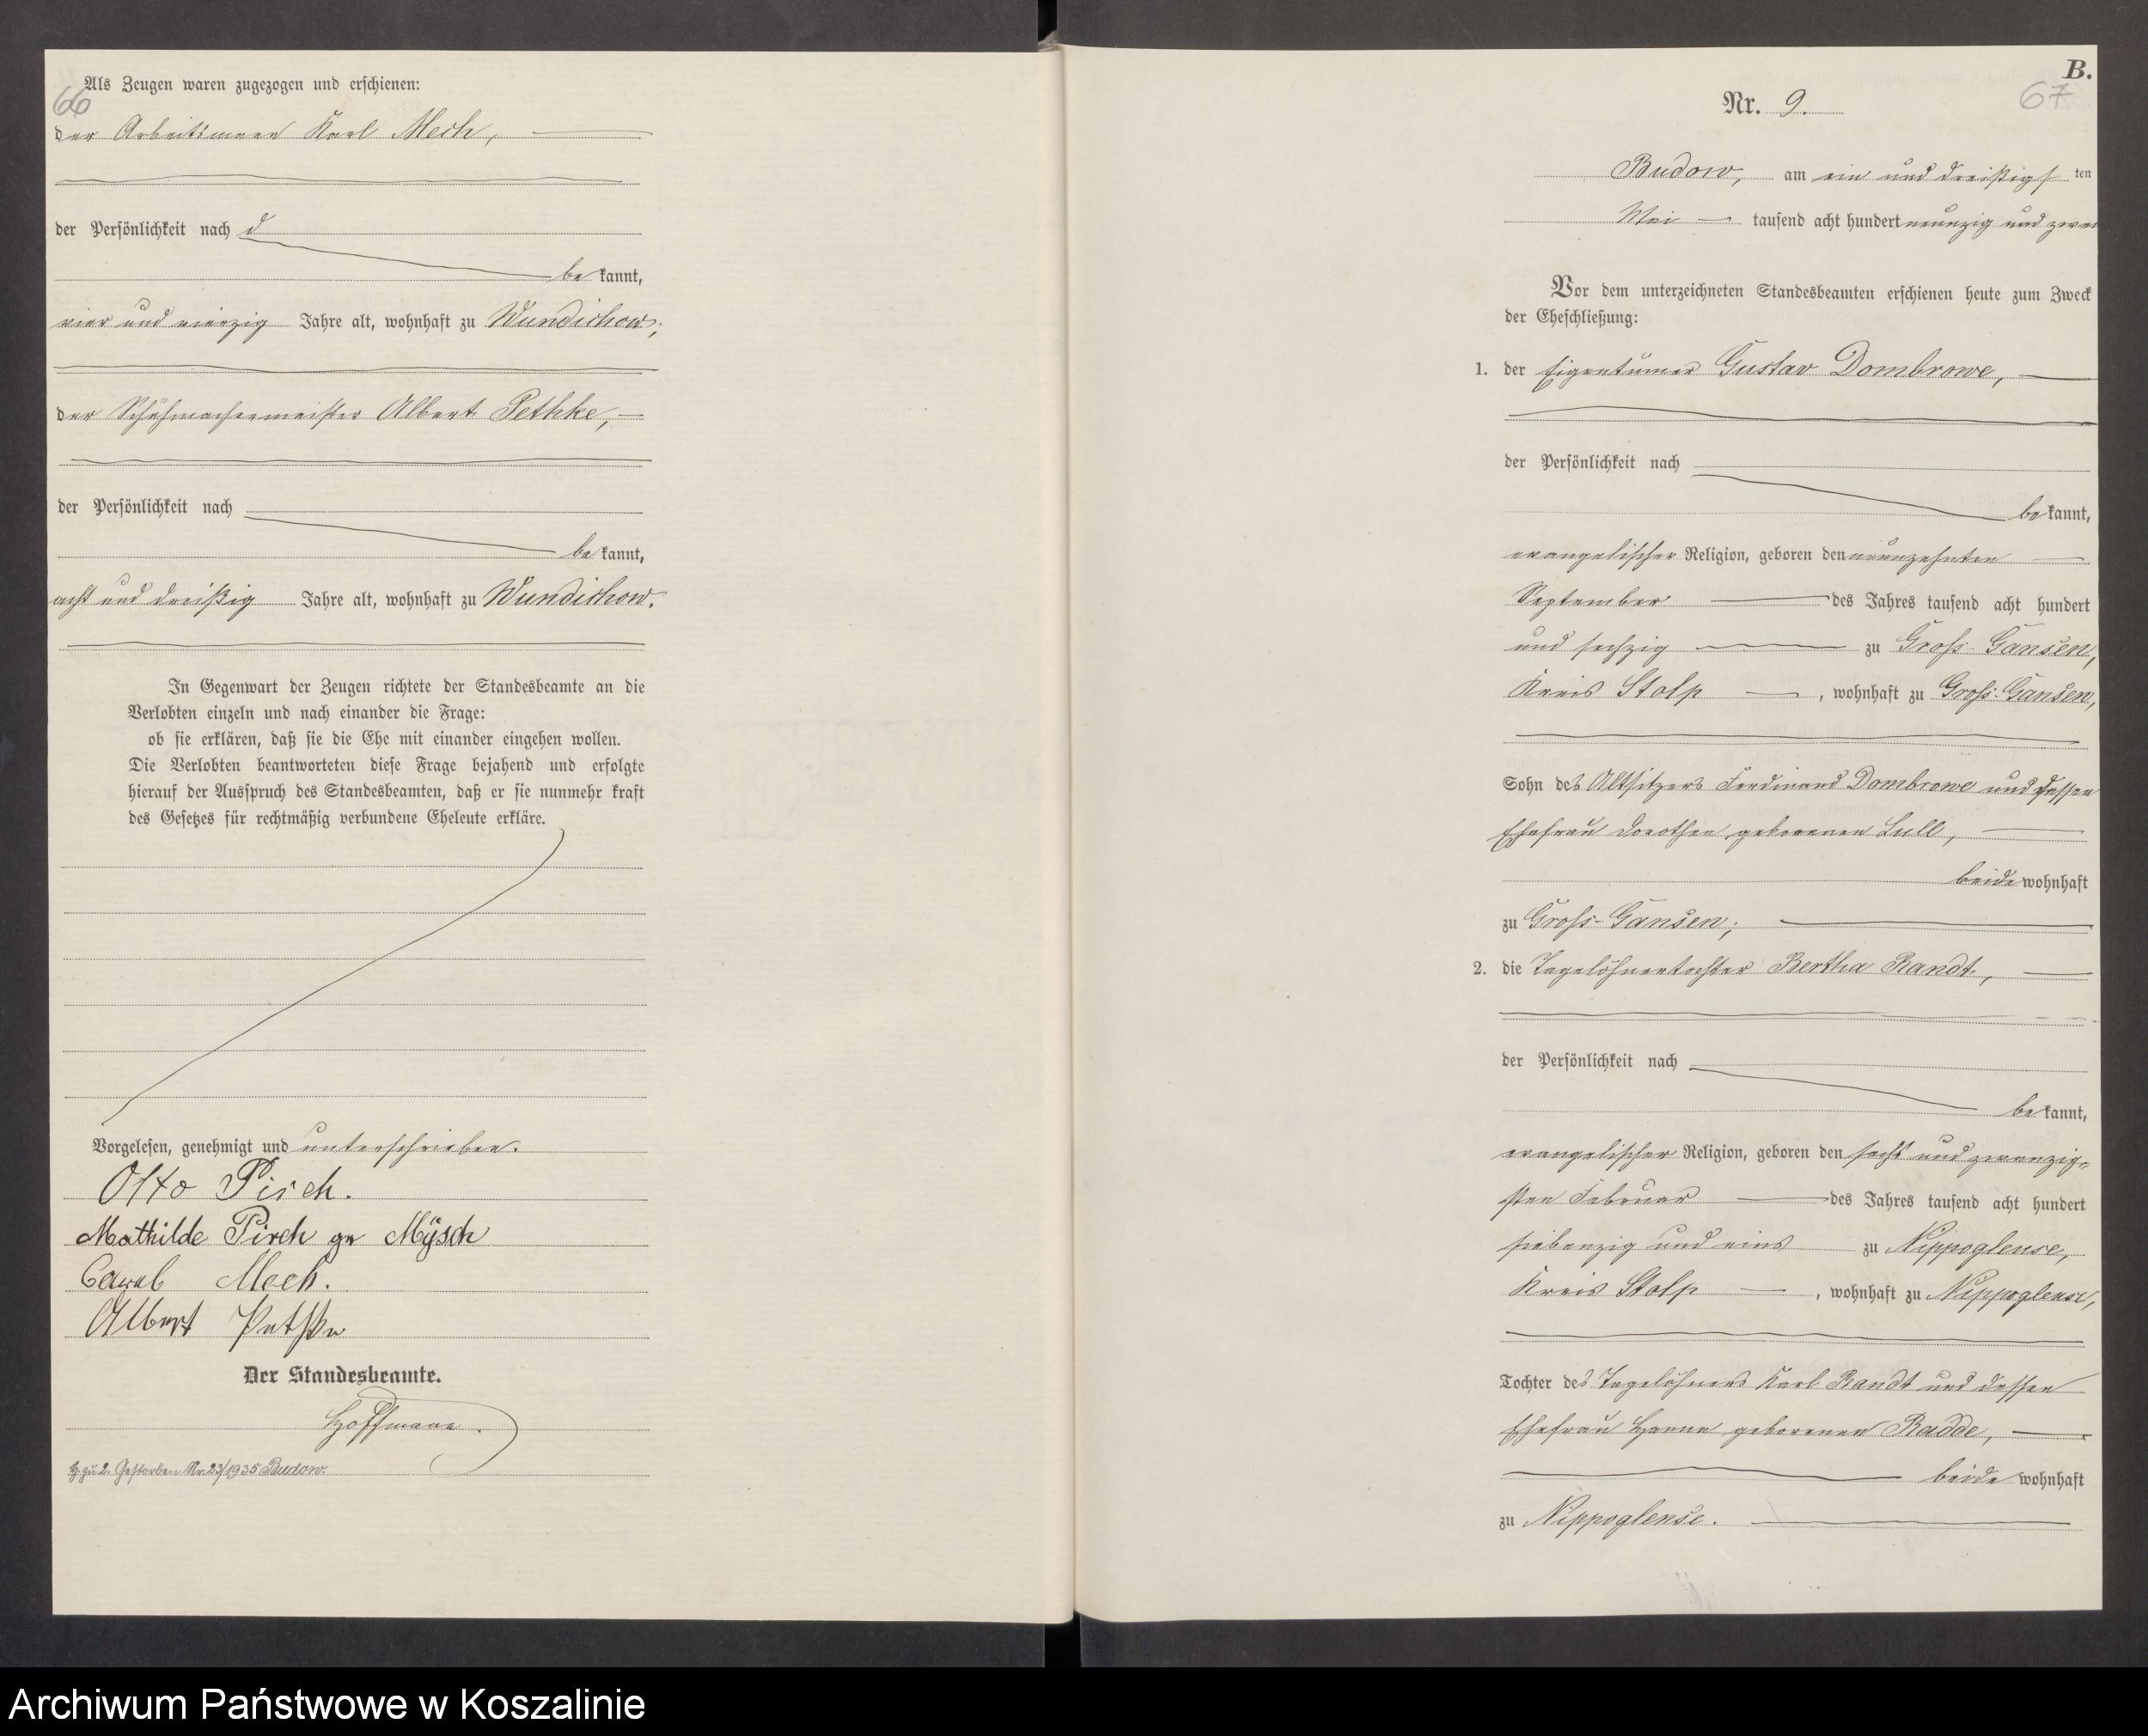 66
Als Zeugen waren zugezogen und erschienen:
der Arbeitsmann Karl Mech,
der Persönlichkeit nach d
be kannt,
vier und vierzig Jahre alt, wohnhaft zu Wundichow;
der Schuhmachermeister Albert Pethke,
der Persönlichkeit nach
be kannt,
acht und dreißig Jahre alt, wohnhaft zu Wundichow.
In Gegenwart der Zeugen richtete der Standesbeamte an die
Verlobten einzeln und nach einander die Frage:
ob sie erklären, daß sie die Ehe mit einander eingehen wollen.
Die Verlobten beantworteten diese Frage bejahend und erfolgte
hierauf der Ausspruch des Standesbeamten, daß er sie nunmehr kraft
des Gesetzes für rechtmäßig verbundene Eheleute erkläre.
Vorgelesen, genehmigt und unterschrieben.
Otto Pirch.
Mathilde Pirch gr Mÿsch
Mech.
Albert Pethke
Der Standesbeamte.
Hoffmann.
H. zu 2. Gestorben Nr. 23/1935 Budow.
B.
67
Nr. 9.
Budow, am ein und dreißigs ten
Mai tausend acht hundert neunzig und zwei
Vor dem unterzeichneten Standesbeamten erschienen heute zum Zweck
der Eheschließung:
1. der Eigentümer Gustav Dombrowe,
der Persönlichkeit nach
be kannt,
evangelischer Religion, geboren den neunzehnten
September des Jahres tausend acht hundert
und sechzig zu Groß-Gansen,
Kreis Stolp, wohnhaft zu Groß-Gansen,
Sohn des Altsitzers Ferdinand Dombrowe und dessen
Ehefrau Dorothea geborenen Lull,
beide wohnhaft
zu Groß-Gansen;
2. die Tagelöhnertochter Bertha Randt,
der Persönlichkeit nach
be kannt,
evangelischer Religion, geboren den sechs und zwanzig-
sten Februar des Jahres tausend acht hundert
siebenzig und eins zu Nippoglense,
Kreis Stolp, wohnhaft zu Nippoglense,
Tochter des Tagelöhners Karl Randt und dessen
Ehefrau Hanna geborenen Radde,
beide wohnhaft
zu Nippoglense.
Archiwum Państwowe w Koszalinie